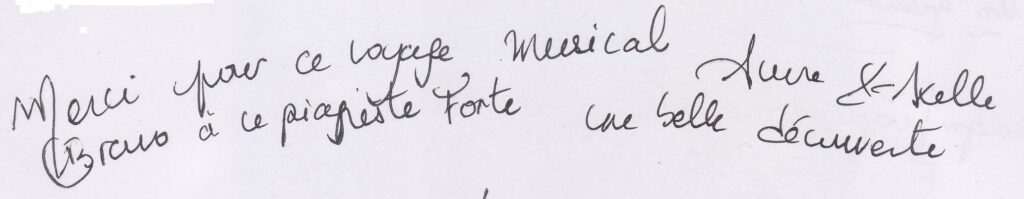 Merci pour ce voyage musical
Bravo à ce pianiste Forte une belle découverte
Anne & Axelle